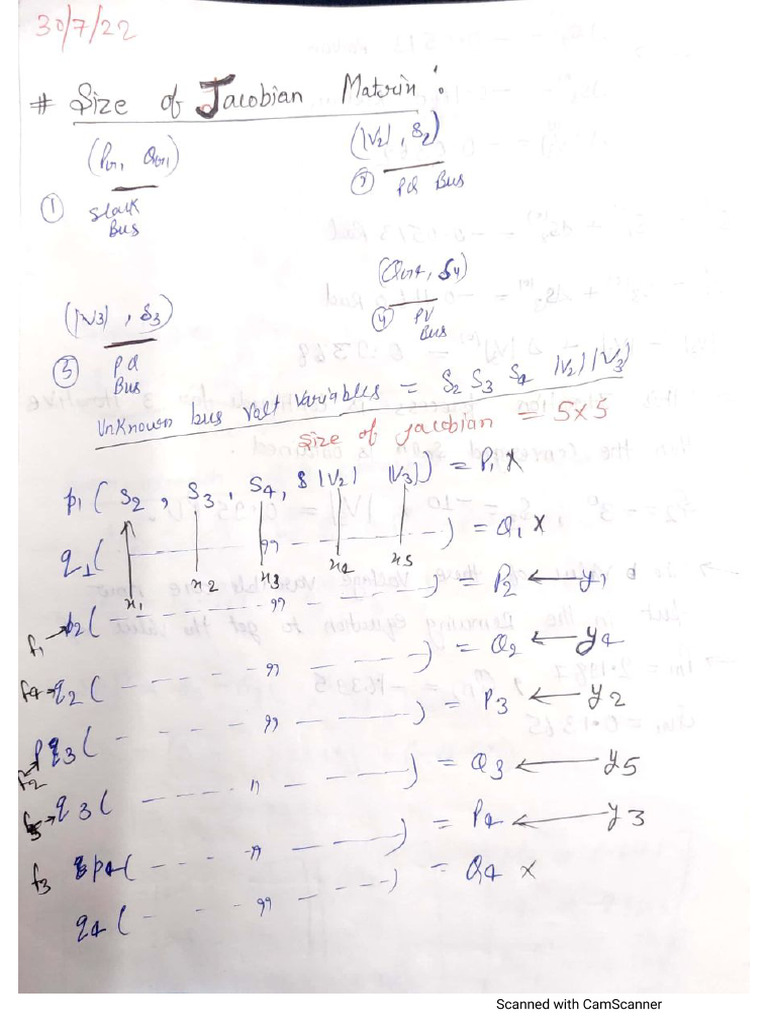 30/7/22
# Size of Jacobian Matrin :
(PG1, QG1)
(|V2|, S2)
① Slack Bus
② PQ Bus
(|V3|, S3)
(QG4, S4)
③ PQ Bus
④ PV Bus
Unknown bus volt variables = S2 S3 S4 |V2| |V3|
Size of jacobian = 5x5
p1 ( S2, S3, S4, |V2| |V3|) = P1 X
q1 ( " ) = Q1 X
x1 x2 x3 x4 x5
f1 → p2 ( - - - - " - - - - ) = P2 ← y1
f4 → q2 ( - - - - " - - - - ) = Q2 ← y4
f2 → p3 ( - - - - " - - - - ) = P3 ← y2
f5 → q3 ( - - - - " - - - - ) = Q3 ← y5
f3 p4 ( - - - - " - - - - ) = P4 ← y3
q4 ( - - - - " - - - - ) = Q4 X
Scanned with CamScanner